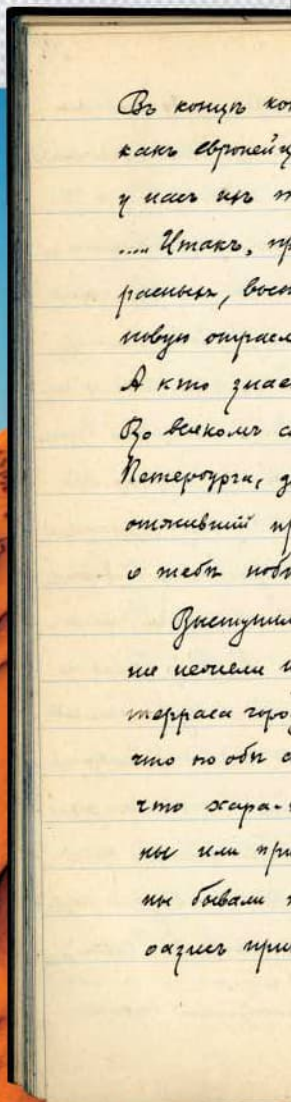 Въ концѣ ко
какъ европей
у насъ
.... Итакъ, пр
расныхъ, восп
новую отрасл
А кто знае
Во всякомъ с
Петербурга, д
отживший пр
о тебѣ
Выступил
терраса горо
что по обѣ с
что хара-
ны или при
ны бывали
оазисъ при